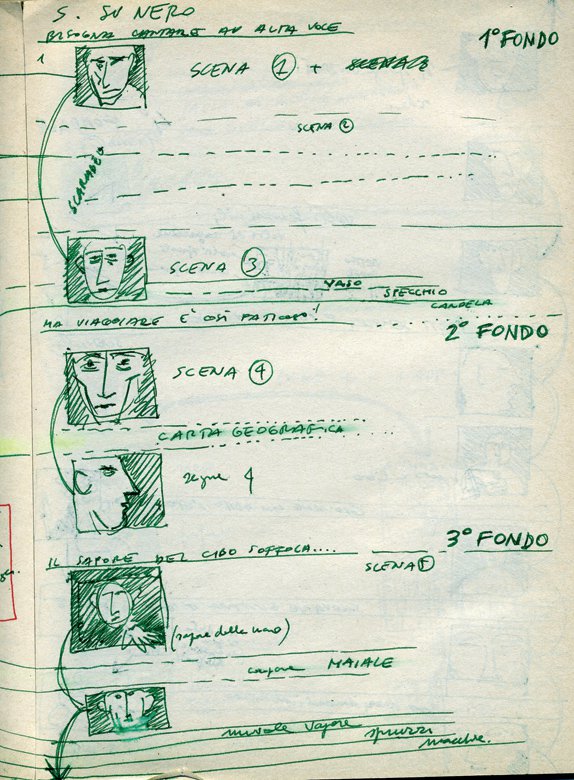 S. SU NERO
BISOGNA CANTARE AD ALTA VOCE
1° FONDO
1
SCENA 1 +
SCENA 2
SCARABEO
SCENA 3
VASO
SPECCHIO
CANDELA
MA VIAGGIARE È COSÌ FATICOSO!
2° FONDO
SCENA 4
CARTA GEOGRAFICA
segue 4
3° FONDO
IL SAPORE DEL CIBO SOFFOCA....
SCENA 5
(sapore della mano)
MAIALE
vapore
spruzzi
macchie.